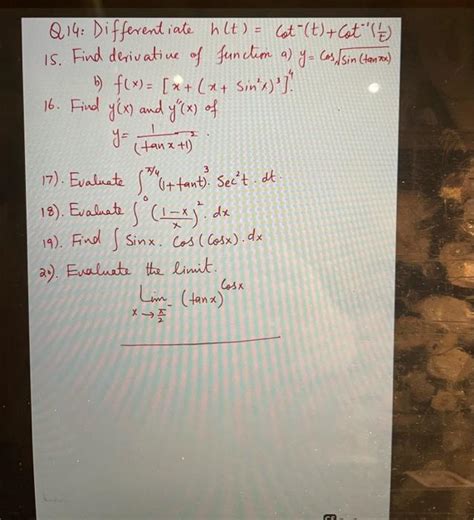 Q14: Differentiate h(t) = Cot⁻(t) + Cot⁻¹(1/t)
15. Find derivative of function a) y = Cos√(sin(tanπx))
b) f(x) = [x + (x + Sin²x)³]⁴.
16. Find y'(x) and y''(x) of
y = 1/(tanx+1)² .
17). Evaluate ∫^π/4 (1+tant)³. Sec²t. dt.
18). Evaluate ∫^0 ((1-x)/x)². dx
19). Find ∫ Sinx. Cos(Cosx). dx
20). Evaluate the limit.
Lim x→π/2⁻ (tanx)^Cosx